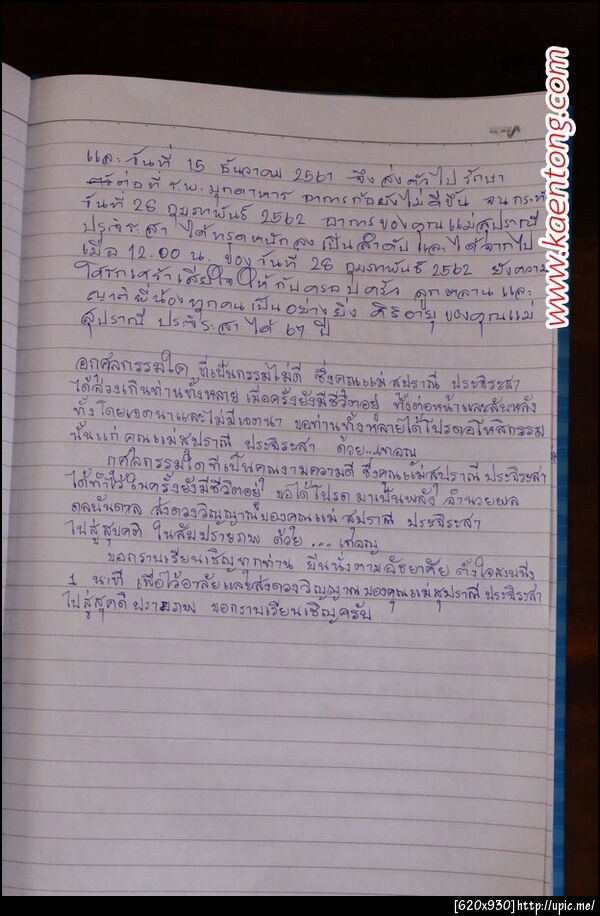 และวันที่ 15 ธันวาคม 2561 จึงส่งตัวไปรักษา
ต่อที่ ร.พ. มุกดาหาร อาการก็ยังไม่ดีขึ้น จนกระทั่ง
วันที่ 26 กุมภาพันธ์ 2562 อาการของคุณแม่สุปราณี
ประจิระสา ได้ทรุดหนักลงเป็นลำดับ และได้จากไป
เมื่อ 12.00 น. ของวันที่ 26 กุมภาพันธ์ 2562 ยังความ
โศกเศร้าเสียใจให้กับครอบครัว ลูกหลานและ
ญาติพี่น้องทุกคนเป็นอย่างยิ่ง สิริอายุของคุณแม่
สุปราณี ประจิระสา ได้ 67 ปี
อกุศลกรรมใด ที่เป็นกรรมไม่ดี ซึ่งคุณแม่สุปราณี ประจิระสา
ได้ล่วงเกินท่านทั้งหลาย เมื่อครั้งยังมีชีวิตอยู่ ทั้งต่อหน้าและลับหลัง
ทั้งโดยเจตนาและไม่มีเจตนา ขอท่านทั้งหลายได้โปรดอโหสิกรรม
นั้นแก่ คุณแม่สุปราณี ประจิระสา ด้วย...เทอญ
กุศลกรรมใดที่เป็นคุณงามความดี ซึ่งคุณแม่สุปราณี ประจิระสา
ได้ทำไว้ในครั้งยังมีชีวิตอยู่ ขอได้โปรดมาเป็นพลัง อำนวยผล
ดลบันดาล ส่งดวงวิญญาณของคุณแม่สุปราณี ประจิระสา
ไปสู่สุคติ ในสัมปรายภพ ด้วย ... เทอญ
ขอกราบเรียนเชิญทุกท่าน ยืนนั่งตามอัธยาศัย ตั้งใจสงบนิ่ง
1 นาที เพื่อไว้อาลัยและส่งดวงวิญญาณของคุณแม่สุปราณี ประจิระสา
ไปสู่สุคติปรายภพ ขอกราบเรียนเชิญครับ
www.kaentong.com
[620x930]http://upic.me/